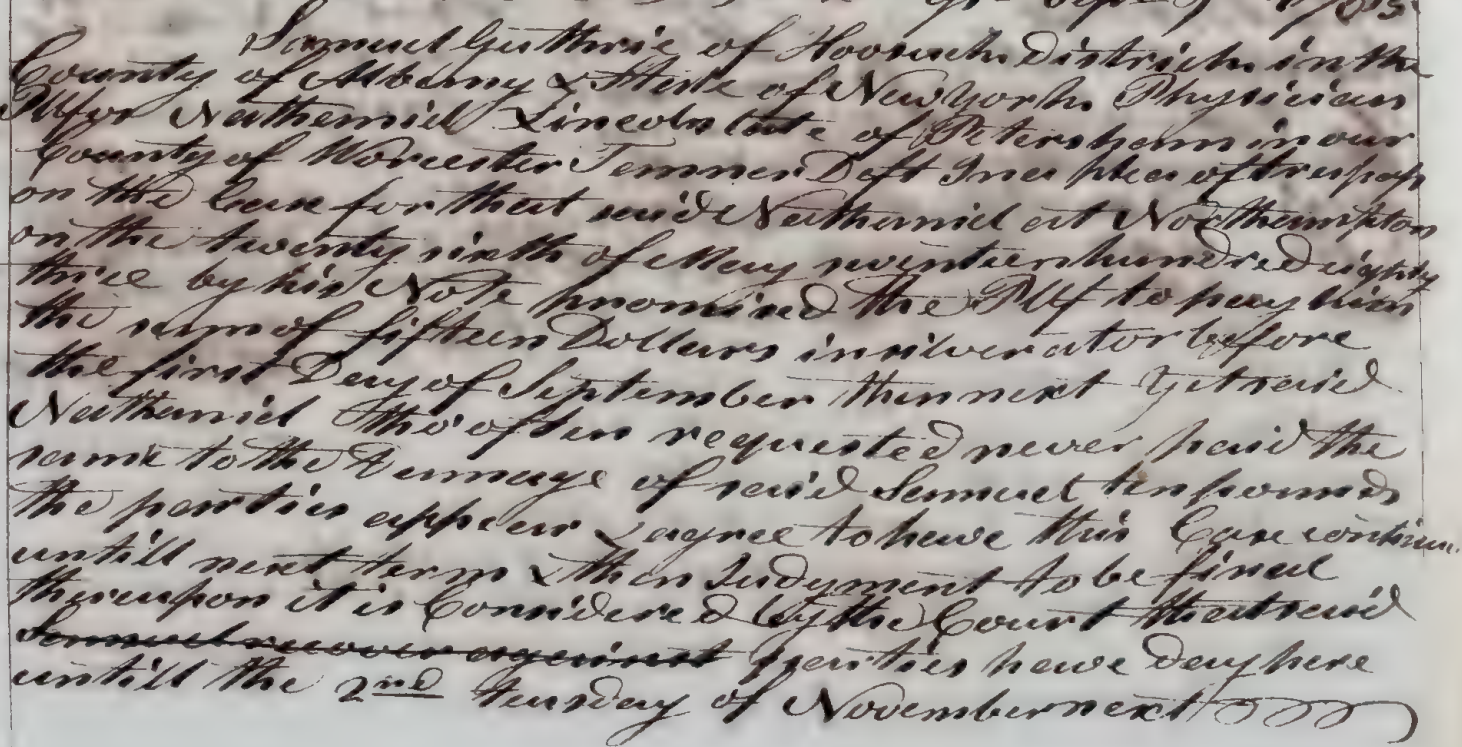 Samuel Guthrie of Hoosuck District in the
County of Albany & State of New York Physician
Plf vs Nathaniel Lincoln late of Petersham in our
County of Worcester Tanner Deft In a plea of trespass
on the Case for that said Nathaniel at Northampton
on the twenty sixth of May seventeen hundred eighty
three by his Note promised the Plf to pay him
the sum of fifteen Dollars in silver at or before
the first Day of September then next Yet said
Nathaniel tho' often requested never paid the
same to the Damage of said Samuel ten pounds
the parties appear & agree to have this Case continued
untill next term & then Judgment to be final
thereupon it is Considered by the Court that said
Samuel recover against parties have day here
untill the 2nd tuesday of November next